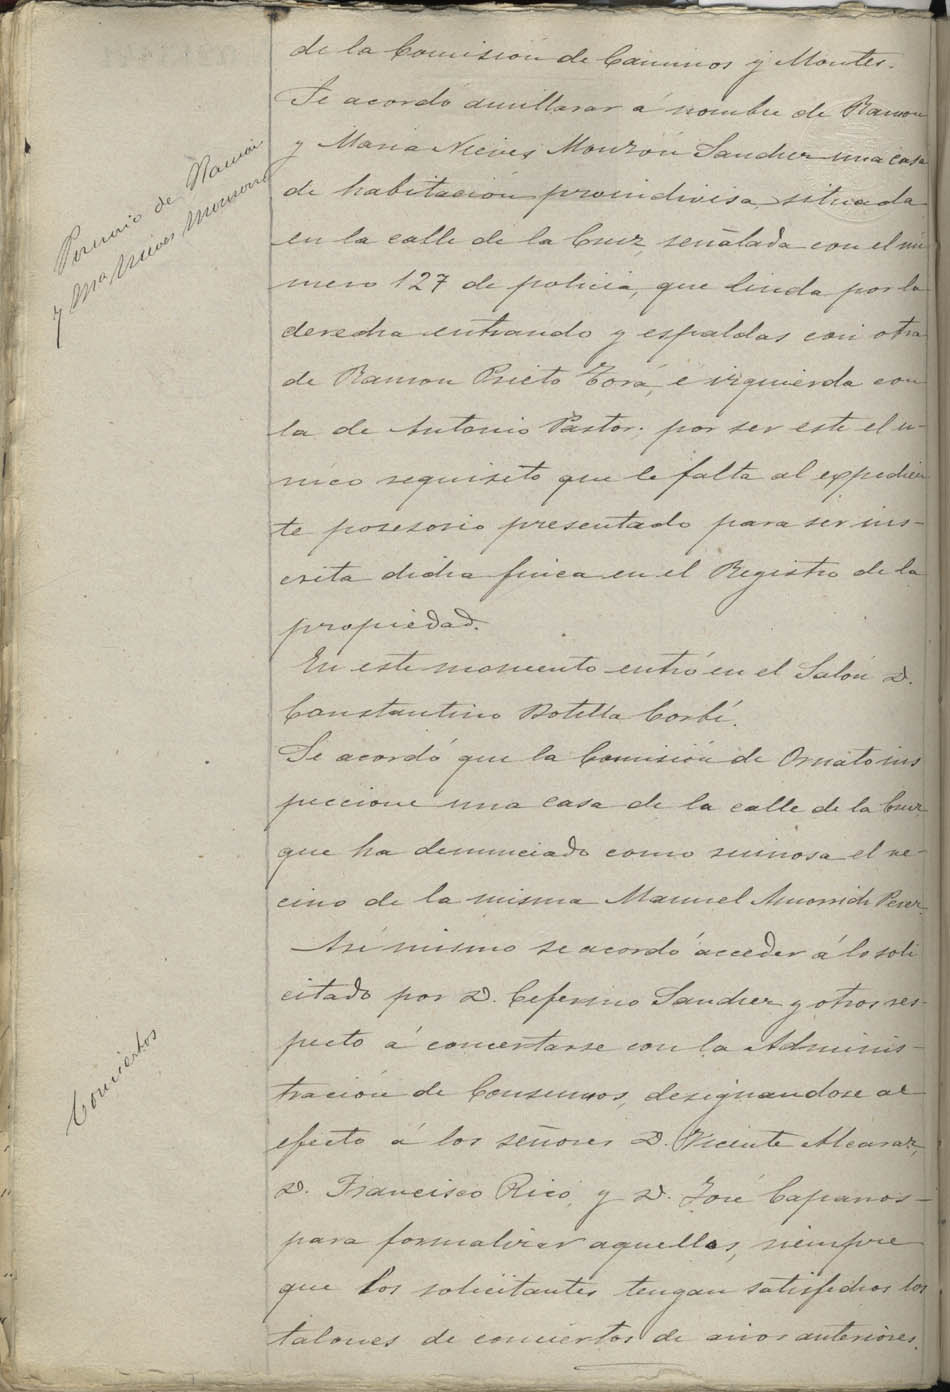 de la Comisión de Caminos y Montes.
Se acordó amillarar á nombre de Ramon
y Maria Nieves Monzón Sanchez una casa
de habitación proindivisa, situada
en la calle de la Cruz, señalada con el nú-
mero 127 de policia, que linda por la
derecha entrando y espaldas con otra
de Ramon Prieto Torá, é izquierda con
la de Antonio Pastor. por ser este el ú-
nico requisito que le falta al expedien
te posesorio presentado para ser ins-
crita dicha finca en el Registro de la
propiedad.
En este momento entró en el Salón D.
Constantino Botella Corbí.
Se acordó que la Comisión de Ornato ins
peccione una casa de la calle de la Cruz
que ha denunciado como ruinosa el ve-
cino de la misma Manuel Perez.
Asi mismo se acordó acceder á lo soli
citado por D. Ceferino Sanchez y otros res-
pecto á concertarse con la Adminis-
tración de Consumos, designandose al
efecto á los señores D. Vicente Alcaraz,
D. Francisco Rico, y D. José
para formalizar aquellos, siempre
que los solicitantes tengan satisfechos los
talones de conciertos de años anteriores.
de Ramon
y Mª Nieves Monzon
Conciertos